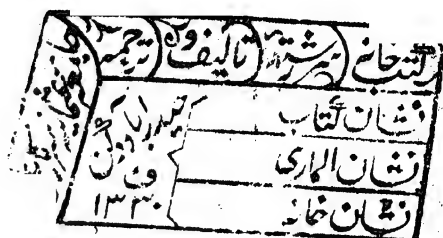 کتب خانہ سررشتہ تالیف و ترجمہ
نشان کتاب
نشان الماری
نشان خانہ
حیدرآباد دکن
۱۳۳۰